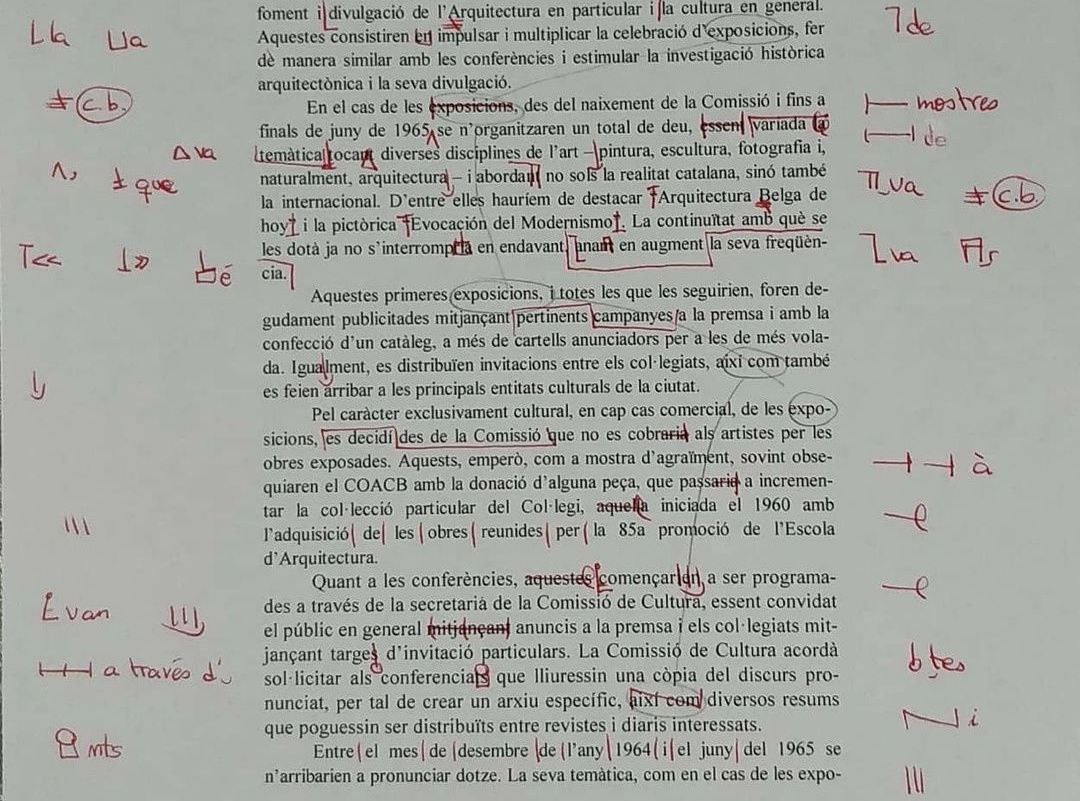 foment i divulgació de l'Arquitectura en particular i la cultura en general.
Aquestes consistiren en impulsar i multiplicar la celebració d'exposicions, fer
dè manera similar amb les conferències i estimular la investigació històrica
arquitectònica i la seva divulgació.
En el cas de les exposicions, des del naixement de la Comissió i fins a
finals de juny de 1965 se n'organitzaren un total de deu, essent variada la
temàtica tocant diverses disciplines de l'art – pintura, escultura, fotografia i,
naturalment, arquitectura – i abordant no sols la realitat catalana, sinó també
la internacional. D'entre elles hauríem de destacar "Arquitectura Belga de
hoy" i la pictòrica "Evocación del Modernismo". La continuïtat amb què se
les dotà ja no s'interrompria en endavant anant en augment la seva freqüèn-
cia.
Aquestes primeres exposicions, i totes les que les seguirien, foren de-
gudament publicitades mitjançant pertinents campanyes a la premsa i amb la
confecció d'un catàleg, a més de cartells anunciadors per a les de més vola-
da. Igualment, es distribuïen invitacions entre els col·legiats, així com també
es feien arribar a les principals entitats culturals de la ciutat.
Pel caràcter exclusivament cultural, en cap cas comercial, de les expo-
sicions, es decidí des de la Comissió que no es cobraria als artistes per les
obres exposades. Aquests, emperò, com a mostra d'agraïment, sovint obse-
quiaren el COACB amb la donació d'alguna peça, que passaria a incremen-
tar la col·lecció particular del Col·legi, aquella iniciada el 1960 amb
l'adquisició de les obres reunides per la 85a promoció de l'Escola
d'Arquitectura.
Quant a les conferències, aquestes començaren a ser programa-
des a través de la secretaria de la Comissió de Cultura, essent convidat
el públic en general mitjançant anuncis a la premsa i els col·legiats mit-
jançant targes d'invitació particulars. La Comissió de Cultura acordà
sol·licitar als conferenciants que lliuressin una còpia del discurs pro-
nunciat, per tal de crear un arxiu específic, així com diversos resums
que poguessin ser distribuïts entre revistes i diaris interessats.
Entre el mes de desembre de l'any 1964 i el juny del 1965 se
n'arribarien a pronunciar dotze. La seva temàtica, com en el cas de les expo-
la
a
c.b.
va
que
<<
>>
é
van
a través d'
nts
de
mostres
de
va
c.b.
va
s
à
tes
i